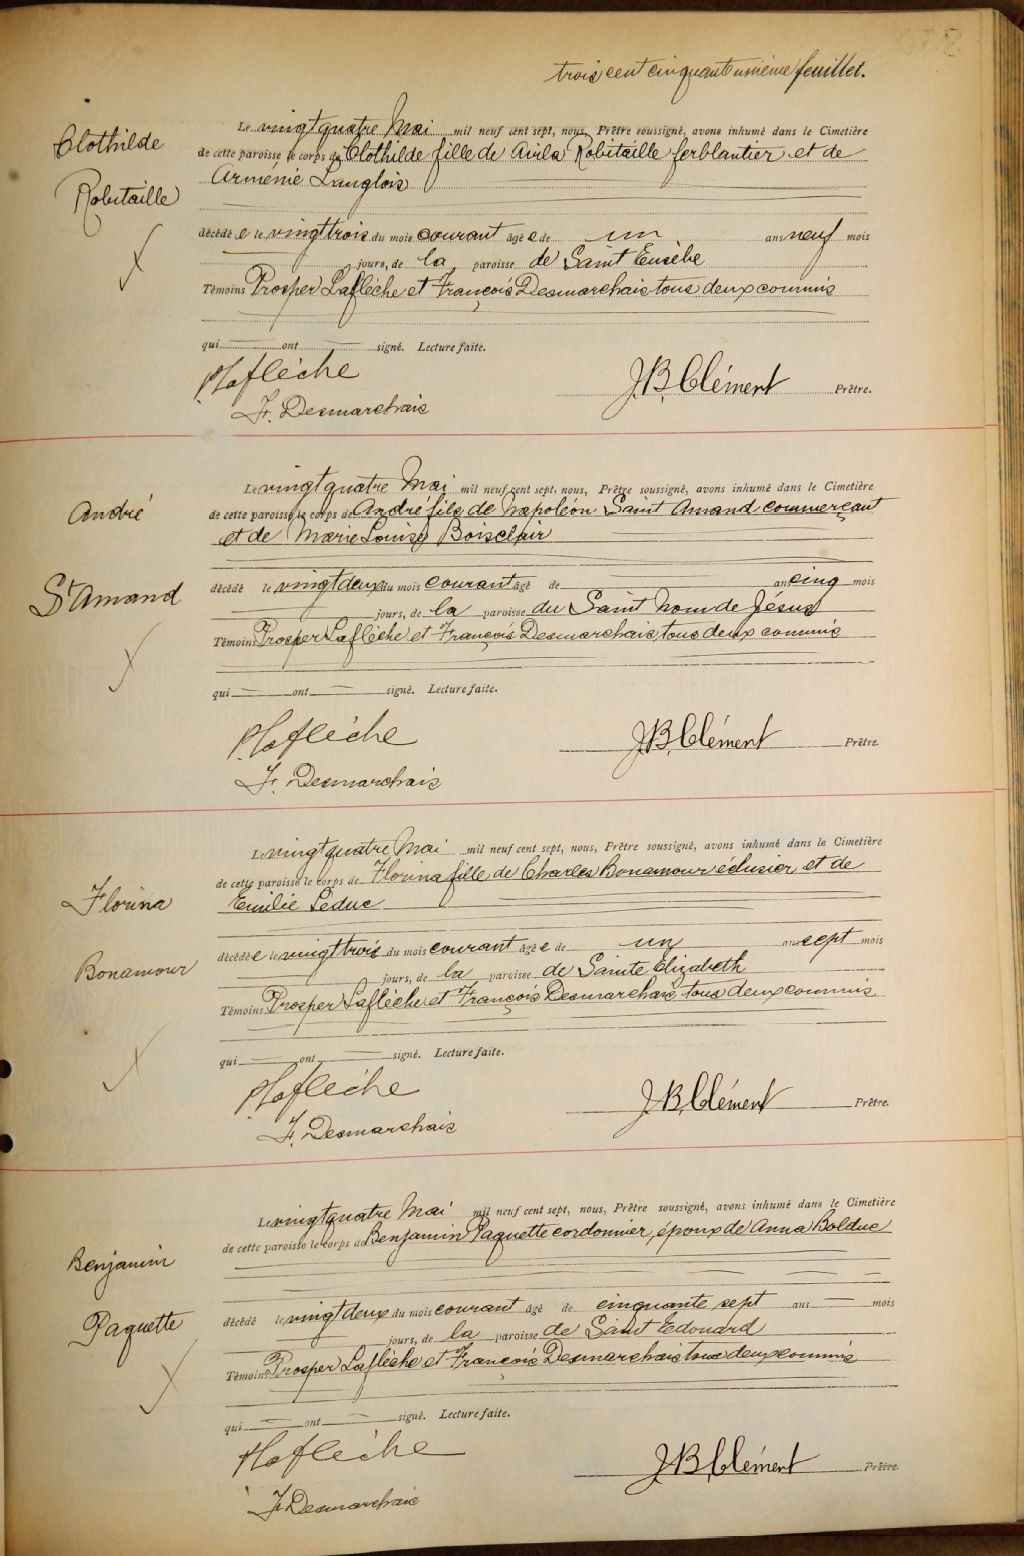 trois cent cinquante unième feuillet.
Clothilde
Robitaille
Le vingt quatre Mai mil neuf cent sept, nous, Prêtre soussigné, avons inhumé dans le Cimetière
de cette paroisse le corps de Clothilde fille de Avila Robitaille ferblantier et de
Arménie Langlois
décédé e le vingt trois du mois courant âgé e de un ans neuf mois
jours, de la paroisse de Saint Eusèbe
Témoins Prosper Laflèche et François Desmarchais tous deux commis
qui ont signé. Lecture faite.
P Laflèche
J B Clément Prêtre.
F. Desmarchais
André
St Amand
Le vingt quatre Mai mil neuf cent sept, nous, Prêtre soussigné, avons inhumé dans le Cimetière
de cette paroisse le corps de André fils de Napoléon Saint Amand commerçant
et de Marie Louise Boisclair
décédé le vingt deux du mois courant âgé de ans cinq mois
jours, de la paroisse du Saint Nom de Jésus
Témoins Prosper Laflèche et François Desmarchais, tous deux commis
qui ont signé. Lecture faite.
P Laflèche
J B Clément Prêtre.
F. Desmarchais
Florina
Bonamour
Le vingt quatre Mai mil neuf cent sept, nous, Prêtre soussigné, avons inhumé dans le Cimetière
de cette paroisse le corps de Florina fille de Charles Bonamour éclusier et de
Emilie Leduc
décédé e le vingt trois du mois courant âgé e de un ans sept mois
jours, de la paroisse de Sainte Elizabeth
Témoins Prosper Laflèche et François Desmarchais, tous deux commis
qui ont signé. Lecture faite.
P Laflèche
J B Clément Prêtre.
F. Desmarchais
Benjamin
Paquette
Le vingt quatre Mai mil neuf cent sept, nous, Prêtre soussigné, avons inhumé dans le Cimetière
de cette paroisse le corps de Benjamin Paquette cordonnier, époux de Anna Bolduc
décédé le vingt deux du mois courant âgé de cinquante sept ans mois
jours, de la paroisse de Saint Edouard
Témoins Prosper Laflèche et François Desmarchais tous deux commis
qui ont signé. Lecture faite.
P Laflèche
J B Clément Prêtre.
F. Desmarchais